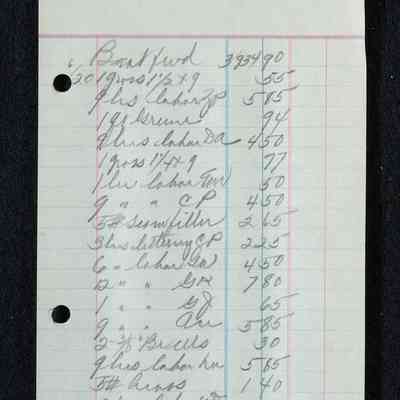 Boat fwd 393490
6/20 1 gross 1 1/2 x 9 55
9 hrs labor JP 5 85
1 qt Green 94
9 hrs labor DA 4 50
1 gross 1 1/4 x 9 77
1 hr labor 50
9 " " CP 4 50
5# Seamfiller 2 65
3 hrs lettering CP 2 25
6 " labor 4 50
12 " " 7 80
1 " " GJ 65
9 " " 5 85
2 - 30
9 hrs labor 5 85
5# 1 40